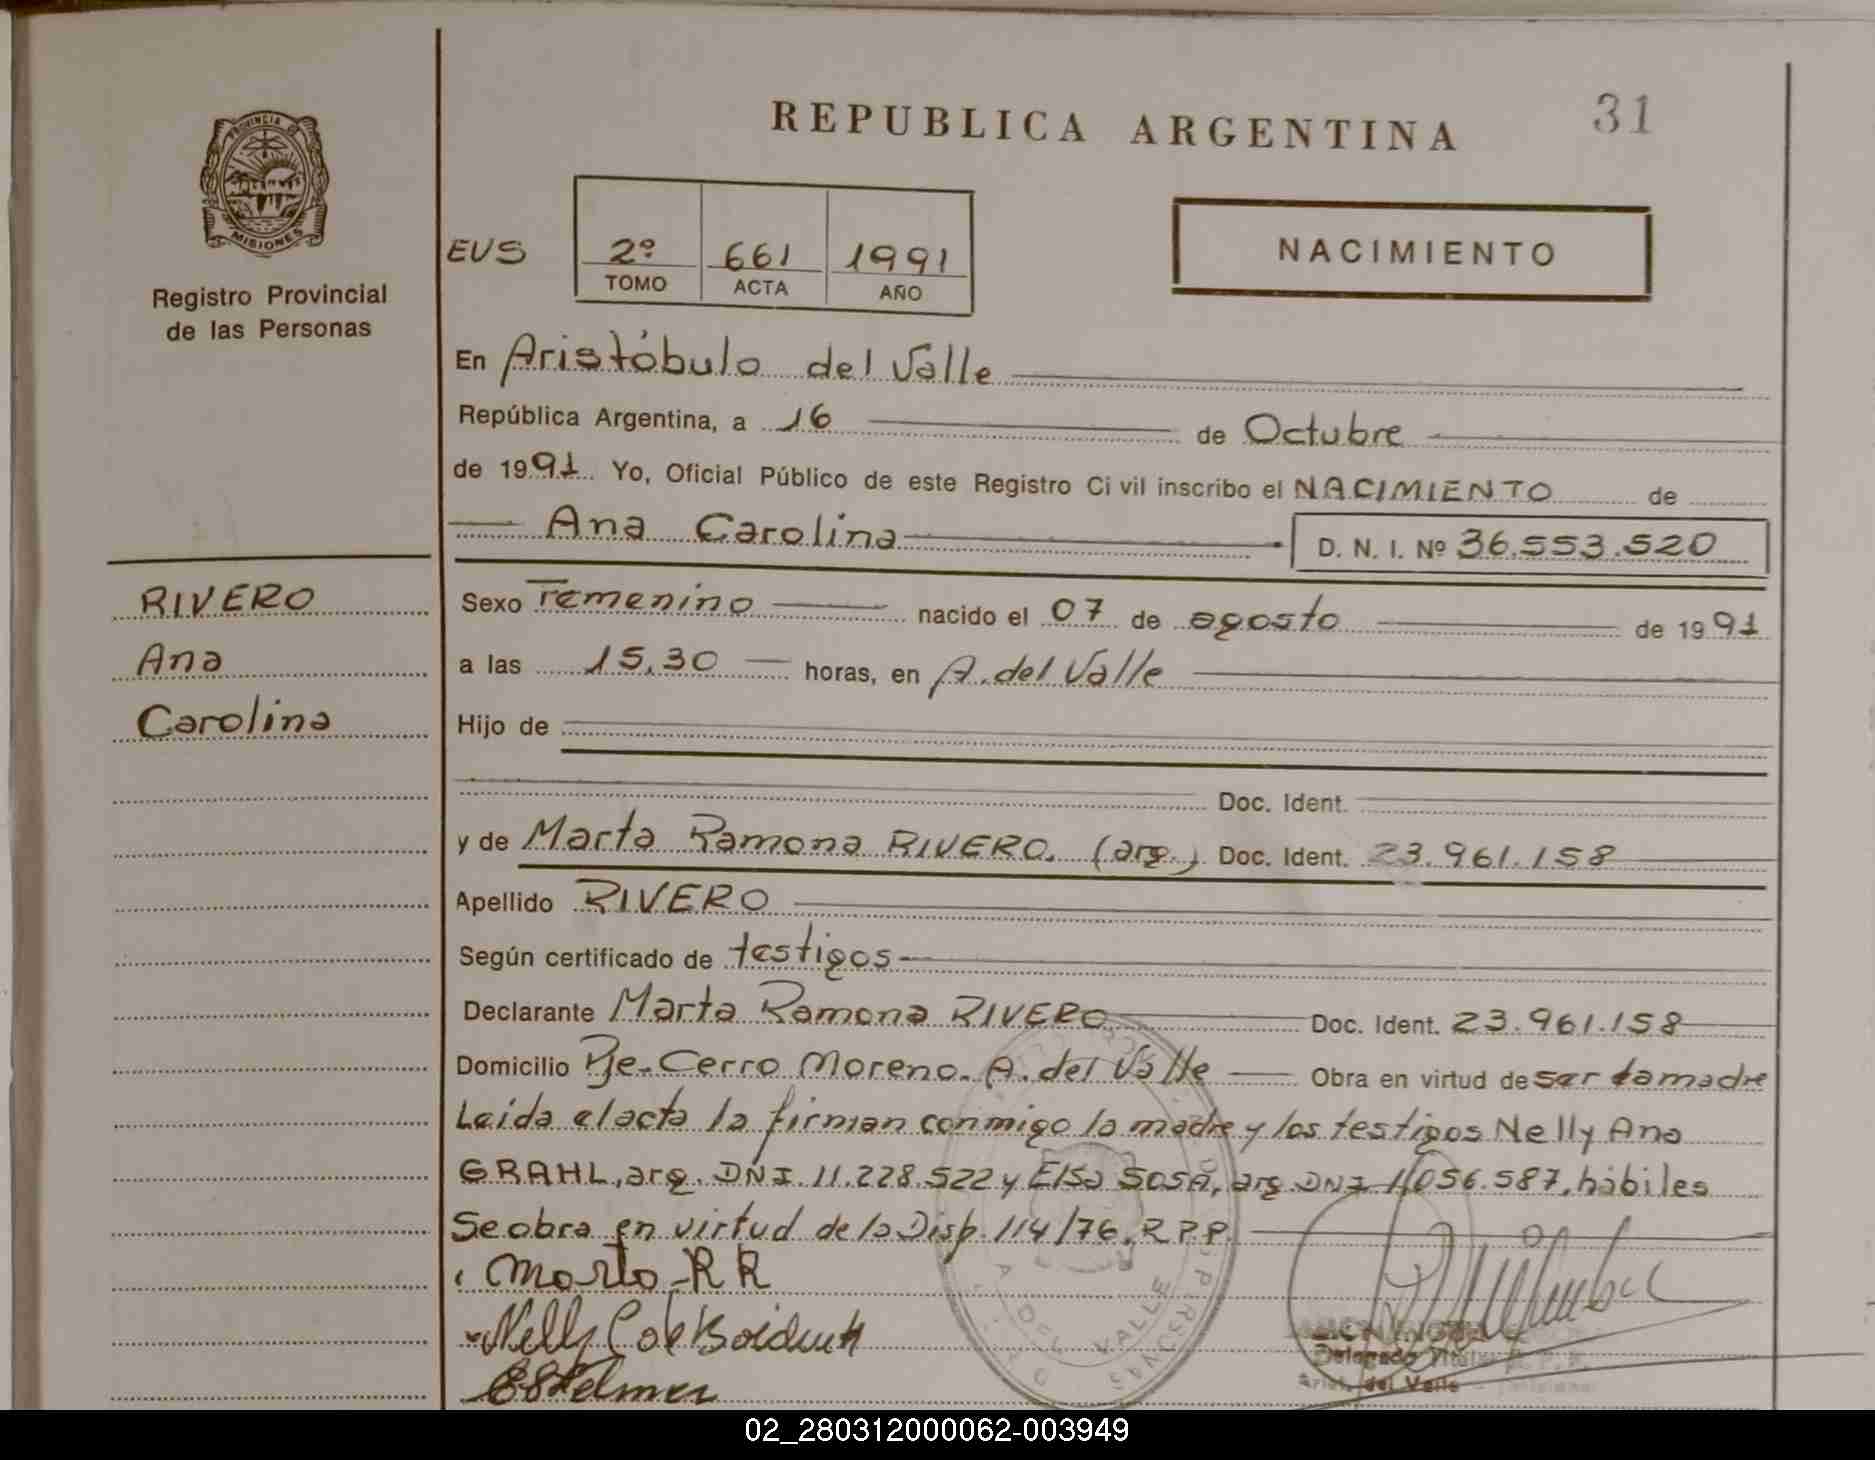 REPUBLICA ARGENTINA
31
PROVINCIA DE
MISIONES
Registro Provincial
de las Personas
EUS
2º 661 1991
TOMO ACTA AÑO
NACIMIENTO
En Aristóbulo del Valle
República Argentina, a 16 de Octubre
de 1991 Yo, Oficial Público de este Registro Ci vil inscribo el NACIMIENTO de
Ana Carolina D. N. I. Nº 36.553.520
RIVERO
Ana
Carolina
Sexo Femenino nacido el 07 de agosto de 1991
a las 15,30 horas, en A. del Valle
Hijo de
Doc. Ident.
y de Marta Ramona RIVERO. (arg.) Doc. Ident. 23.961.158
Apellido RIVERO
Según certificado de testigos
Declarante Marta Ramona RIVERO Doc. Ident. 23.961.158
Domicilio Pje. Cerro Moreno. A. del Valle Obra en virtud de ser la madre
Leida el acta la firman conmigo la madre y los testigos Nelly Ana
GRAHL, arg. DNI. 11.228.522 y Elsa SOSA, arg DNI 11.056.587, hábiles
Se obra en virtud de la Disp. 114/76. R.P.P.
Marta R R
Nelly
A. DEL VALLE
Delegado Titular R. P. P.
Arist. del Valle - Misiones
02_280312000062-003949